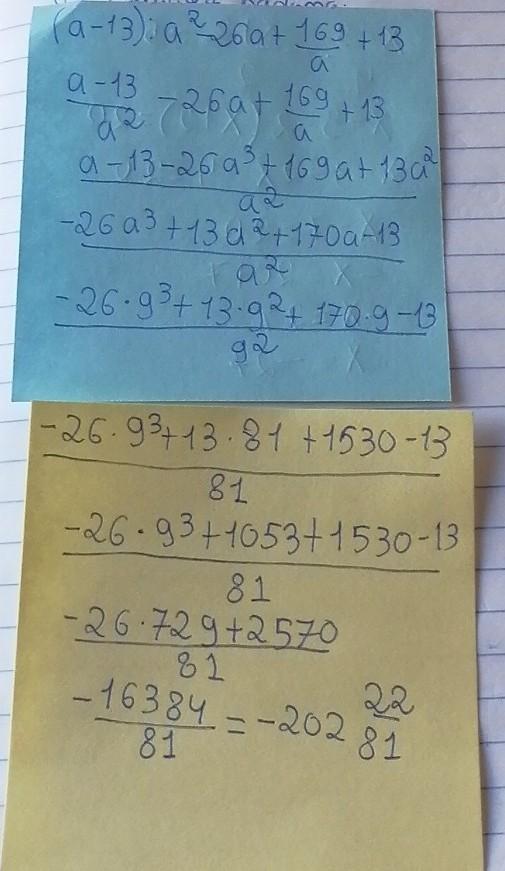 (a-13):a²-26a+169/a+13
a-13/a² -26a+169/a+13
a-13-26a³+169a+13a²/a²
-26a³+13a²+170a-13/a²
-26·9³+13·9²+170·9-13/9²
-26·9³+13·81+1530-13/81
-26·9³+1053+1530-13/81
-26·729+2570/81
-16384/81=-202 22/81